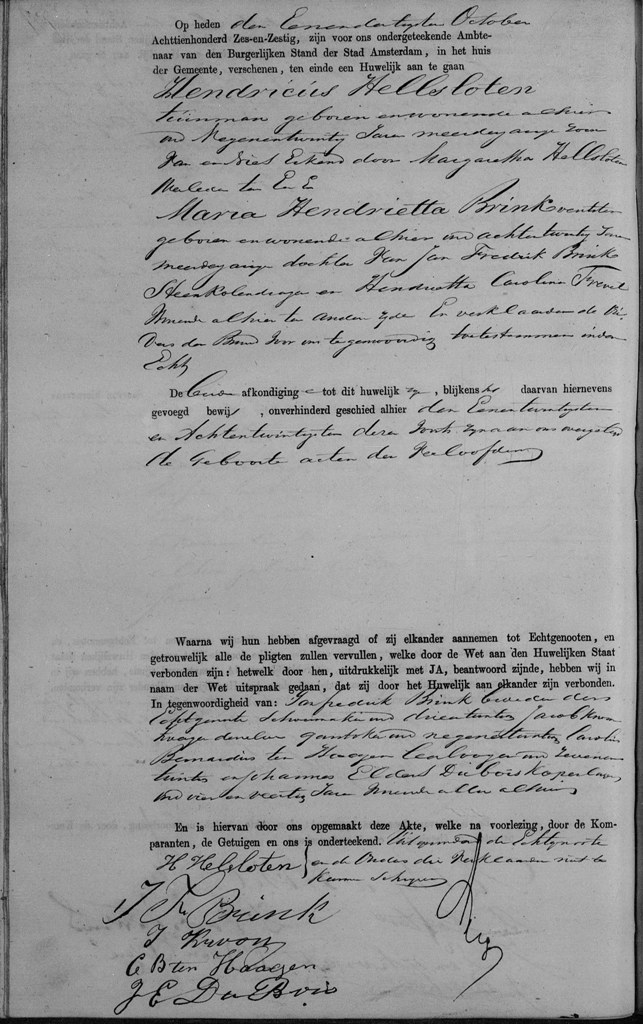 Op heden den Eenendertigsten October
Achttienhonderd Zes-en-Zestig, zijn voor ons ondergeteekende Ambte-
naar van den Burgerlijken Stand der Stad Amsterdam, in het huis
der Gemeente, verschenen, ten einde een Huwelijk aan te gaan
Hendricus Hellsloten
tuinman geboren en wonende alhier
oud Negenentwintig Jaren meerderjarige Zoon
Van en Niet Erkend door Margaretha Hellsloten
Overleden ter Eenre En
Maria Hendrietta Brink
geboren en wonende alhier oud achtentwintig Jaren
meerderjarige dochter Van Jan Fredrik Brink
Steenkolendrager en Hendrietta Carolina
Wonende alhier ter andere zyde En verklaarden de Ou-
ders der Bruid Voor ons tegenwoordig toetestemmen in den
Echt
De beiden afkondigingen tot dit huwelijk zyn, blijkens het daarvan hiernevens
gevoegd bewijs, onverhinderd geschied alhier den Eenentwintigsten
en Achtentwintigsten dezer
de Geboorte acten der Verloofden
Waarna wij hun hebben afgevraagd of zij elkander aannemen tot Echtgenooten, en
getrouwelijk alle de pligten zullen vervullen, welke door de Wet aan den Huwelijken Staat
verbonden zijn: hetwelk door hen, uitdrukkelijk met JA, beantwoord zijnde, hebben wij in
naam der Wet uitspraak gedaan, dat zij door het Huwelijk aan elkander zijn verbonden.
In tegenwoordigheid van: Jan Fredrik Brink broeder der
Echtgenoote Schoenmaker oud drieentwintig Jacob
zwager derzelver oud negenentwintig Carolus
Bernardus ten Haagen oud Zevenen
twintig en Johannes Elders Dubois Koperslager
oud vier en veertig Jaren Wonende allen alhier
En is hiervan door ons opgemaakt deze Akte, welke na voorlezing, door de Kom-
paranten, de Getuigen en ons is onderteekend. Uitgenomen de Echtgenoote
H Hellsloten en de Ouders die Verklaarden niet te
Kunnen Schryven
J Fr Brink
J
C B ten Haagen
J E Du Bois